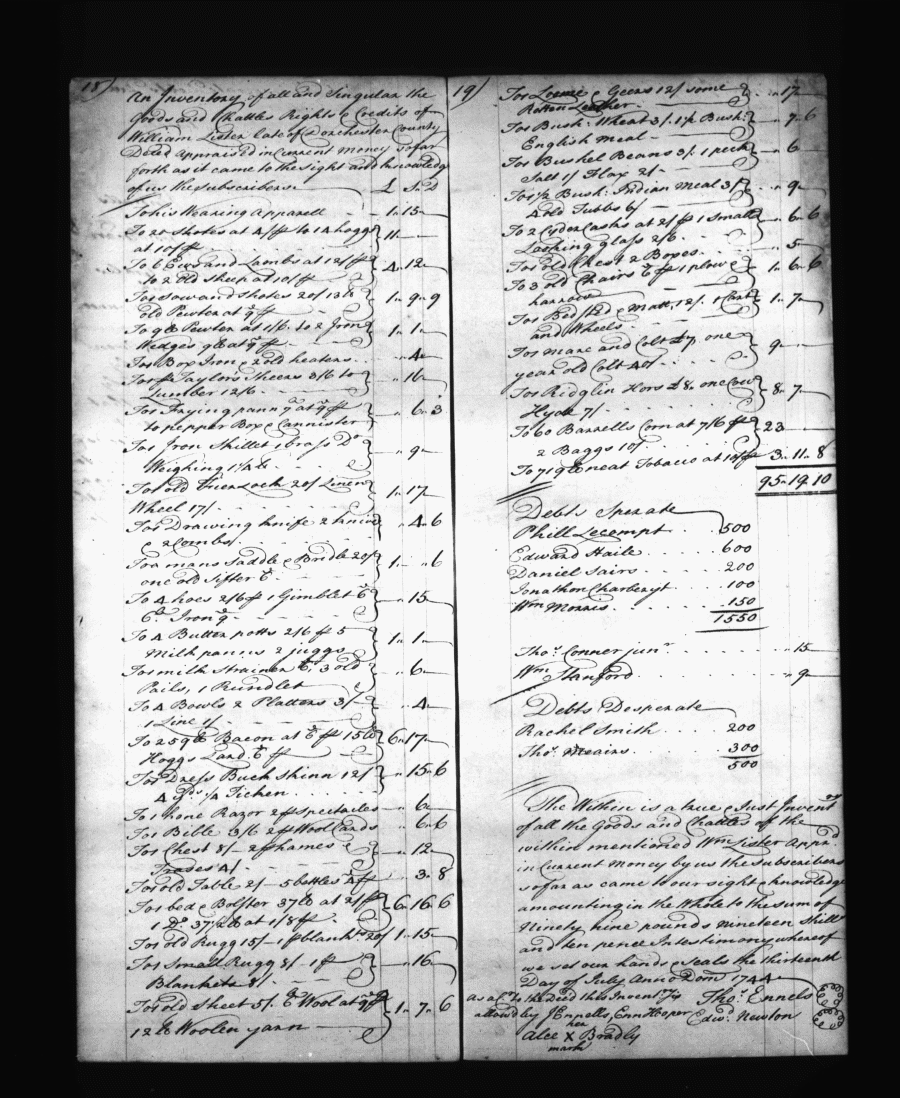 18)
An Inventory of all and Singular the
Goods and Chattles Rights & Credits of
William Lister late of Dorchester County
Decd Appraised in Current Money so far
forth as it came to the sight and knowledg
of us the subscribers £ S d
To his Wearing Apparell 1 15
To 20 Shotes at 4/ ff to 14 hoggs
at 10/ ff 11
To 6 Ews and Lambs at 12/ ff
to 2 old sheep at 10/ ff 4 12
To 1 Sow and Shotes 20/ 13 lb
old Pewter at 9 ff 1 9 9
To 9 lb Pewter at 1/6 to 2 Iron
Wedges 9 lb at ff 1 1
To 1 Box Iron & 2 old heaters 4
To 1 Taylors Sheers 3/6 to
Lumber 12/6 16
To 1 Frying pann ff
to pepper Box & Cannister 6 3
To 1 Iron Skillet 1 brass Do
Weighing 9
To 1 old Fier Lock 20/ Linen
Wheel 17/ 1 17
To 1 Drawing knife 2 knives
& 2 Combs 4 6
To a mans Saddle & Bridle 20/
one old Sifter 1 6
To 4 hoes 2/6 ff 1 Gimblet
Iron 15
To 4 Butter potts 2/6 ff 5
Milk panns 2 juggs 1 1
To 1 milk Strainer 3 old
Pails, 1 Rundlet 6
To 4 Bowls 2 Platters 3/
1 Line 1/ 4
To 259 lb Bacon at ff 15 lb
Hoggs Lard ff 6 17
To 1 Dress Buck Skinn 12/
4 Yds Ticken 15 6
To 1 hone Razor 2 ff Spectacles 6
To 1 Bible 3/6 2 ff Wool Cards 6 6
To 1 Chest 8/ 2 ff hames &
Trades 4/ 12
To 1 old Table 2/ 5 bottles 4 ff 3 8
To 1 bed & Bolster 37 lb at 2/ ff
1 Do 37 1/2 lb at 1/8 ff 6 16 6
To 1 old Rugg 15/ 1 ff blankts 20/ 1 15
To 1 Small Rugg 8/ 1 ff
Blankets 8/ 16
To 1 old Sheet 5/ Wool at ff
12 lb Woolen yarn 1 7 6
19)
To 1 Loome & Geers 12/ some
Rotten Leather 17
To 1 Bush: Wheat 3/ 1 1/2 Bush:
English meal 7 6
To 1 Bushel Beans 3/ 1 peck
Salt 1/ Flax 2/ 6
To 1 1/2 Bush: Indian meal 3/
4 old Tubbs 6/ 9
To 2 Cyder Casks at 2/ ff 1 Small
Looking glass 2/6 6 6
To 1 old Chest 2 Boxes 5
To 3 old Chairs ff 1 plow &
harrow 1 6 6
To 1 Bedsted & Matt, 12/ 1 Cart
and Wheels 1 7
To 1 Mare and Colt £7 one
year old Colt 40/ 9
To 1 Ridglin Hors £8 one Cow
Hyde 7/ 8 7
To 60 Barrells Corn at 7/6 ff
2 Baggs 10/ 23
To 719 lb neat Tobacco at 10/ ff 3 11 8
95 19 10
Debts Sperate
Phill Lecompt 500
Edward Haile 600
Daniel Sairs 200
Jonathon Charbenyt 100
Wm Morris 150
1550
Thos. Conner junr 15
Wm Stanford 9
Debts Desperate
Rachel Smith 200
Thos. Meairs 300
500
The Within is a true & Just Inventory
of all the Goods and Chattles of the
within mentioned Wm Lister Apprd
in Current Money by us the subscribers
so far as came to our sight & knowledge
amounting in the Whole to the sum of
Ninety nine pounds nineteen shills
and ten pence In testimony whereof
we set our hands & Seals the thirteenth
Day of July Anno Dom 1744
to the Decd this Inventry Thos. Ennels
allowd by J Ennells, Enn Hoper Edwd. Newton
her
Alce X Bradly
mark